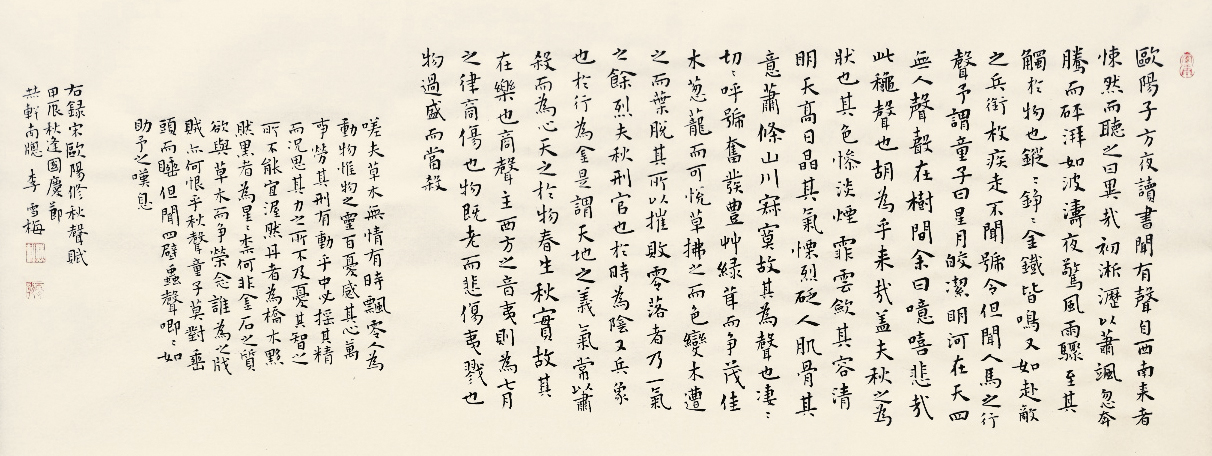 歐陽子方夜讀書聞有聲自西南来者
悚然而聽之曰異哉初淅瀝以蕭颯忽奔
騰而砰湃如波濤夜驚風雨驟至其
觸於物也鏦〻錚〻金鐵皆鳴又如赴敵
之兵銜枚疾走不聞號令但聞人馬之行
聲予謂童子曰星月皎潔明河在天四
無人聲聲在樹間余曰噫嘻悲哉
此穐聲也胡為乎来哉盖夫秋之為
狀也其色慘淡煙霏雲歛其容清
明天高日晶其氣慄烈砭人肌骨其
意蕭條山川寂寞故其為聲也凄〻
切〻呼號奮發豊艸緑茸而争茂佳
木葱蘢而可悅草拂之而色變木遭
之而葉脫其所以摧敗零落者乃一氣
之餘烈夫秋刑官也於時為陰又兵象
也於行為金是謂天地之義氣常以肅
殺而為心天之於物春生秋實故其
在樂也商聲主西方之音夷則為七月
之律商傷也物既老而悲傷夷戮也
物過盛而當殺
嗟夫草木無情有時飄零人為
動物惟物之靈百憂感其心萬
事勞其形有動乎中必摇其精
而况思其力之所不及憂其智之
所不能宜渥然丹者為槁木黟
然黑者為星〻柰何非金石之質
欲與草木而争榮念誰為之戕
賊亦何恨乎秋聲童子莫對垂
頭而睡但聞四壁蟲聲唧〻如
助予之嘆息
右録宋歐陽修秋聲賦
甲辰秋逢國慶節
於軒南牕 李雪梅